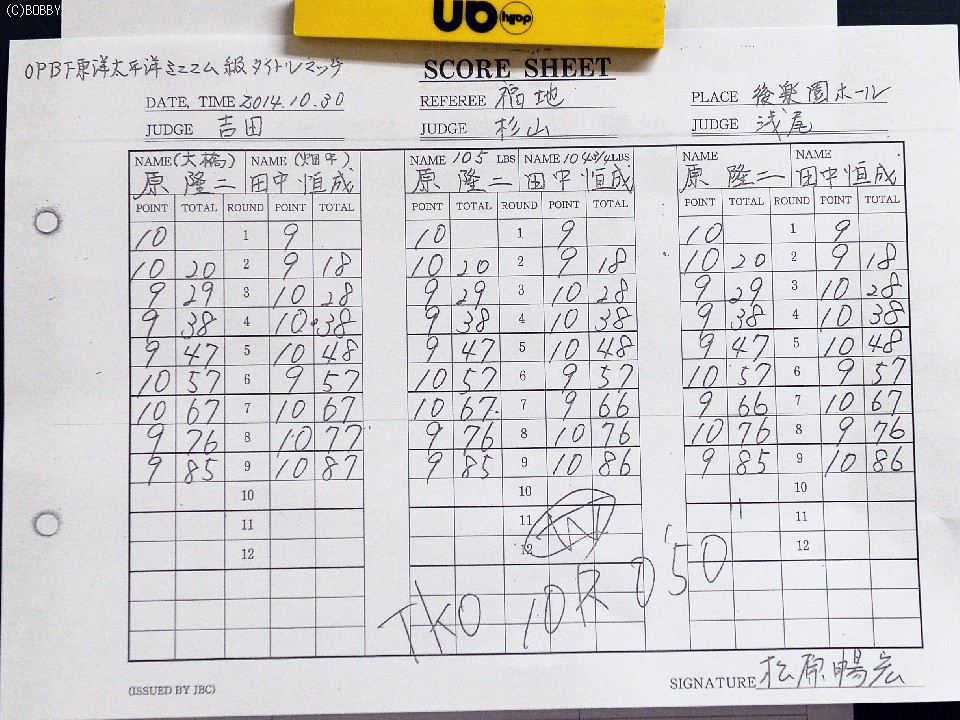 (C)BOBBY
UO dolly
OPBF東洋太平洋ミニマム級タイトルマッチ
SCORE SHEET
DATE, TIME 2014.10.30 REFEREE 福地 PLACE 後楽園ホール
JUDGE 吉田 JUDGE 杉山 JUDGE 浅尾
NAME (大橋) NAME (畑中) NAME 105 LBS NAME 104 3/4 LBS NAME NAME
原 隆二 田中恒成 原 隆二 田中恒成 原 隆二 田中恒成
POINT TOTAL ROUND POINT TOTAL POINT TOTAL ROUND POINT TOTAL POINT TOTAL ROUND POINT TOTAL
10 1 9 10 1 9 10 1 9
10 20 2 9 18 10 20 2 9 18 10 20 2 9 18
9 29 3 10 28 9 29 3 10 28 9 29 3 10 28
9 38 4 10 38 9 38 4 10 38 9 38 4 10 38
9 47 5 10 48 9 47 5 10 48 9 47 5 10 48
10 57 6 9 57 10 57 6 9 57 10 57 6 9 57
10 67 7 10 67 10 67 7 9 66 9 66 7 10 67
9 76 8 10 77 9 76 8 10 76 10 76 8 9 76
9 85 9 10 87 9 85 9 10 86 9 85 9 10 86
10 10 10
11 11 11
12 12 12
W
TKO 10R 0'50"
(ISSUED BY JBC)
SIGNATURE 松原暢宏